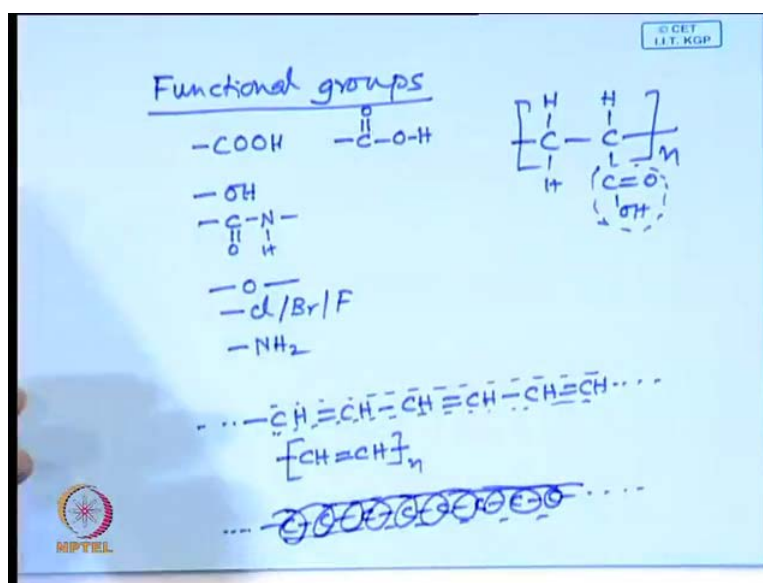 © CET
I.I.T. KGP
Functional groups
-COOH
O
-C-O-H
-OH
-C-N-
O H
-O-
-Cl/Br/F
-NH2
H H
[-C-C-]n
H C=O
OH
....-CH=CH-CH=CH-CH=CH....
-[CH=CH]n
NPTEL